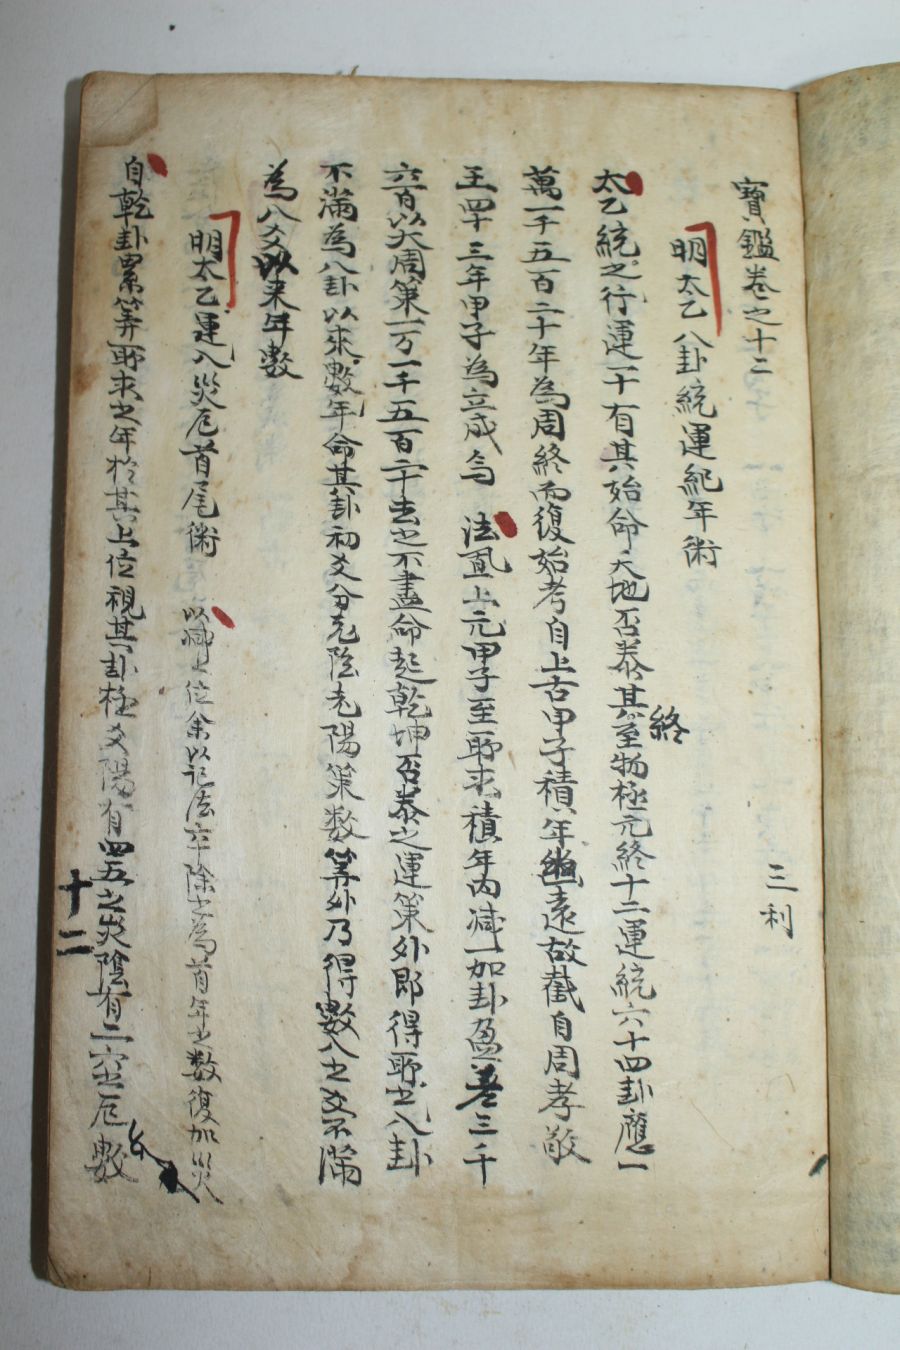 寶鑑卷之十二
三利
明太乙八卦統運紀年術
太乙統之行運一十有其始命天地否泰其至物極元終十二運統六十四卦應一
終
萬一千五百二十年為周終而復始考自上古甲子積年遠故截自周孝敬
王四十三年甲子為立成焉 法置上元甲子至所求積年內減一加卦盈差三千
六百以大周策一万一千五百二十去之不盡命起乾坤否泰之運策外即得所求入卦
不滿為入卦以來數年命其卦初爻分老陰老陽策數筭外乃得數入之爻不滿
為入爻以來年數
明太乙運入災厄首尾術 以減上位余以記法卒除之為首年之數復加災
自乾卦累筭所求之年於其上位視其卦極爻陽有四五之災陰有二六之厄數
十二